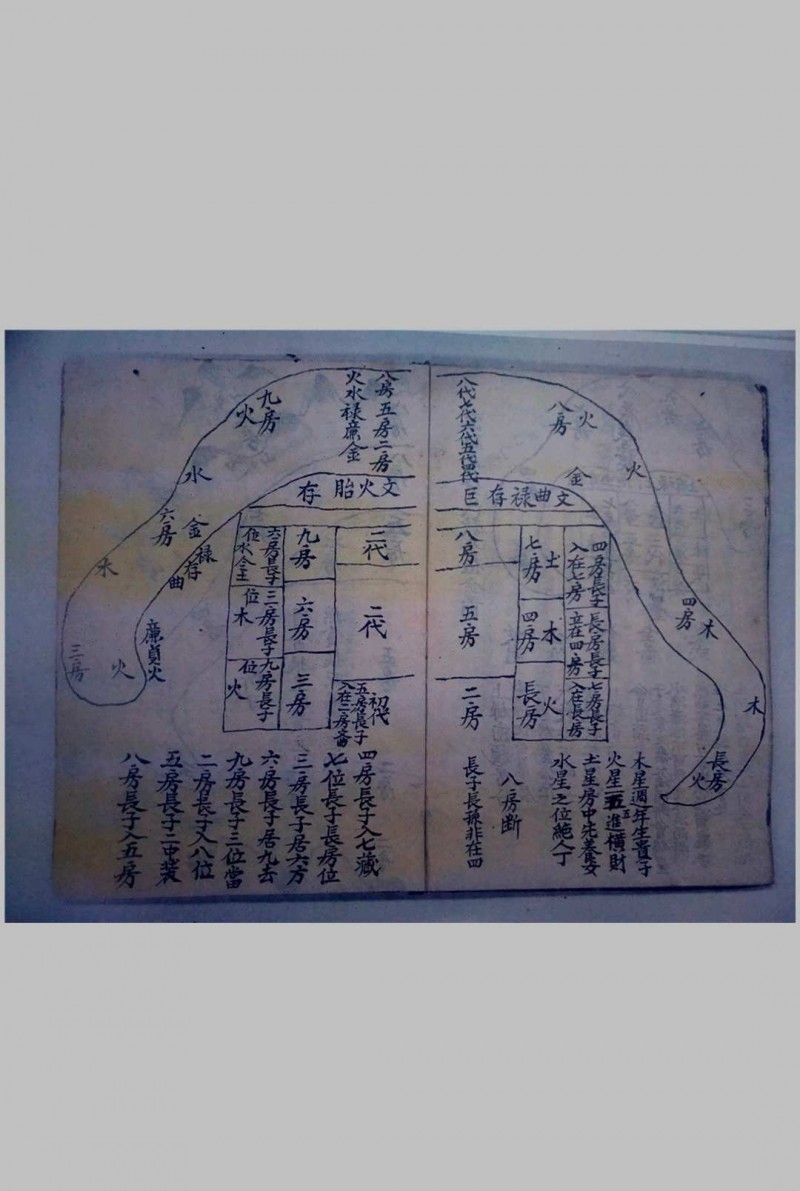 木星週年生貴子
火星二五進橫財
土星房中先養女
水星之位絕人丁
八房斷
長子長孫非在四
四房長子入七藏
七位長子長房位
三房長子居六方
六房長子居九去
九房長子三位當
二房長子入八位
五房長子二中裝
八房長子入五房
八代七代六代五代四代
八房
火
火
金
巨存祿曲文
四房
木
木
長房
火
四房長子入在七房
長房長子立在四房
七房長子入在長房
土
七房
木
四房
火
長房
八房
五房
二房
八房五房二房
火水祿廉金
文火胎存
九房
火
水
六房
金
祿存
曲
木
廉貞火
三房
火
二代
二代
初代
五房長子入在二房
九房
六房
三房
六房長子位水金土
三房長子位木
九房長子位火